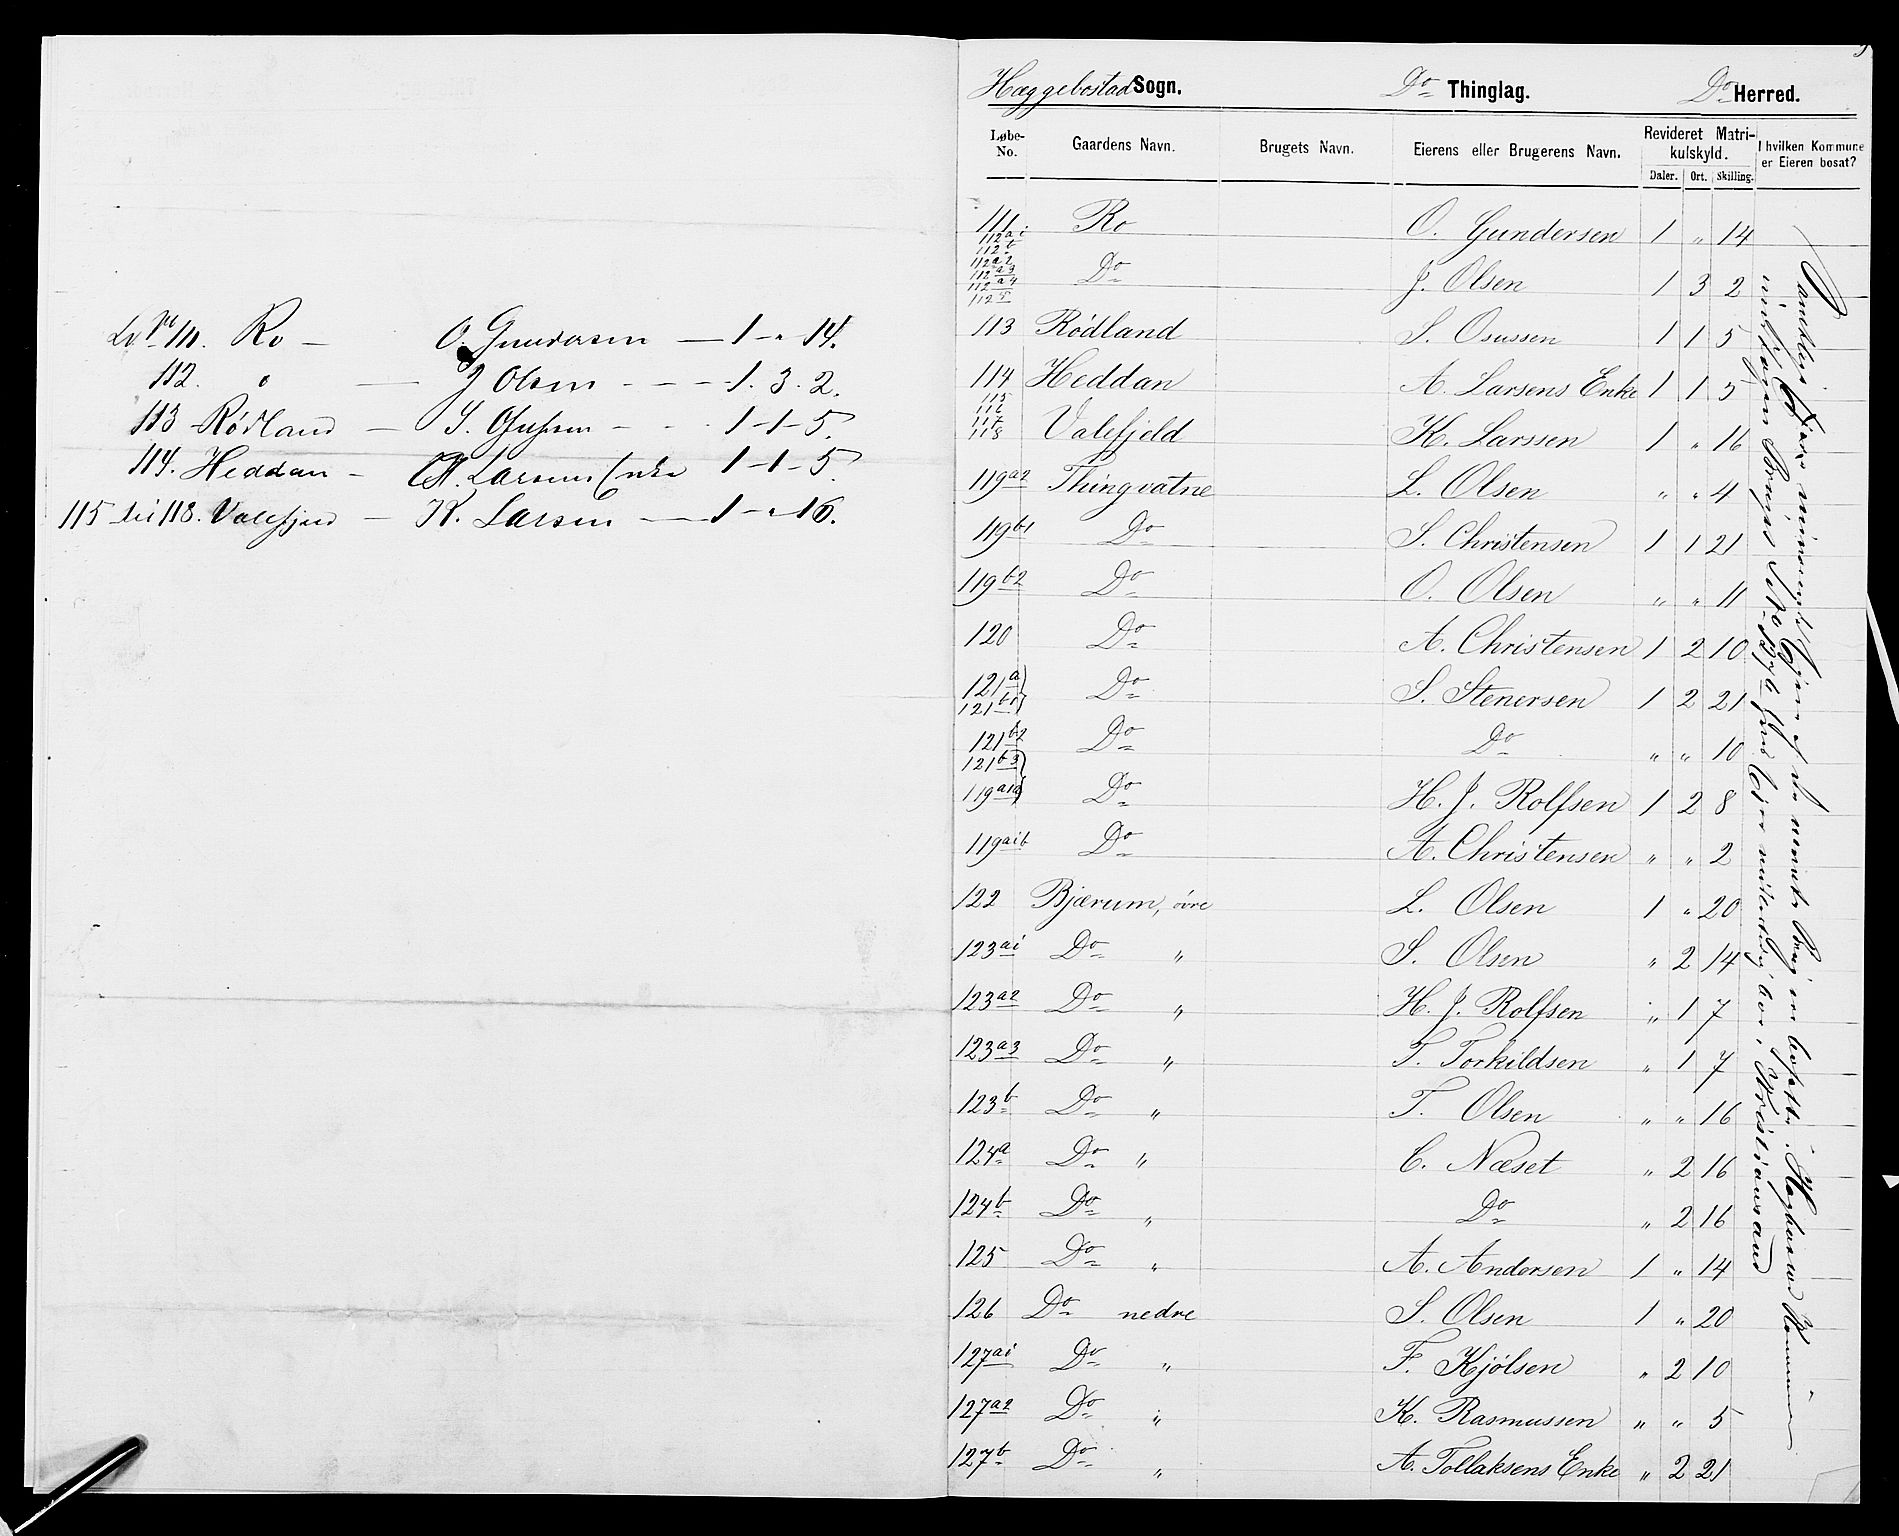 Lb No 111. Ro — O. Gundersen — 1 - „ 14.
112. " — J Olsen - - - 1. 3. 2.
113 Rødland — S. Osussen - - - 1 - 1 - 5.
114. Heddan — A. Larsens Enke 1 - 1 - 5.
115 til 118. Valefjeld — K. Larsen — 1 - „ 16.
Hæggebostad Sogn. Do Thinglag. Do Herred.
Løbe-No. Gaardens Navn. Brugets Navn. Eierens eller Brugerens Navn. Revideret Matrikulskyld. I hvilken Kommune er Eieren bosat?
Daler. Ort. Skilling.
111. Ro O. Gundersen 1 „ 14
112ai
112b
112a2
112a3 Do J. Olsen 1 3 2
112a4
113 Rødland S. Osussen 1 1 5
114 Heddan A. Larsens Enke 1 1 5
115
116
117
118 Valefjeld K. Larssen 1 „ 16
119a2 Thingvatne L. Olsen „ „ 4
119b1 Do S. Christensen 1 1 21
119b2 Do O. Olsen „ „ 11
120 Do A. Christensen 1 2 10
121a
121b1 Do S. Stenersen 1 2 21
121b2 Do Do „ „ 10
121b3
119a1a Do H. J. Rolfsen 1 2 8
119aib Do A. Christensen „ „ 2
122 Bjærum, øvre L. Olsen 1 „ 20
123ai Do „ S. Olsen „ 2 14
123a2 Do „ H. J. Rolfsen „ 1 7
123a3 Do „ T. Torkildsen „ 1 7
123b Do „ T. Olsen „ „ 16
124a Do „ C. Næset „ 2 16
124b Do „ Do „ 2 16
125 Do „ A. Andersen 1 „ 14
126 Do nedre S. Olsen 1 „ 20
127ai Do „ F. Kjølsen „ 2 10
127a2 Do „ K. Rasmussen „ „ 5
127b Do „ A. Tollaksens Enke „ 2 21
Samtlige Eiere af de nævnte Brug ere bosatte i Hægbostad Kommune
undtagen Brugets hvis Eier bor i Kristianssand